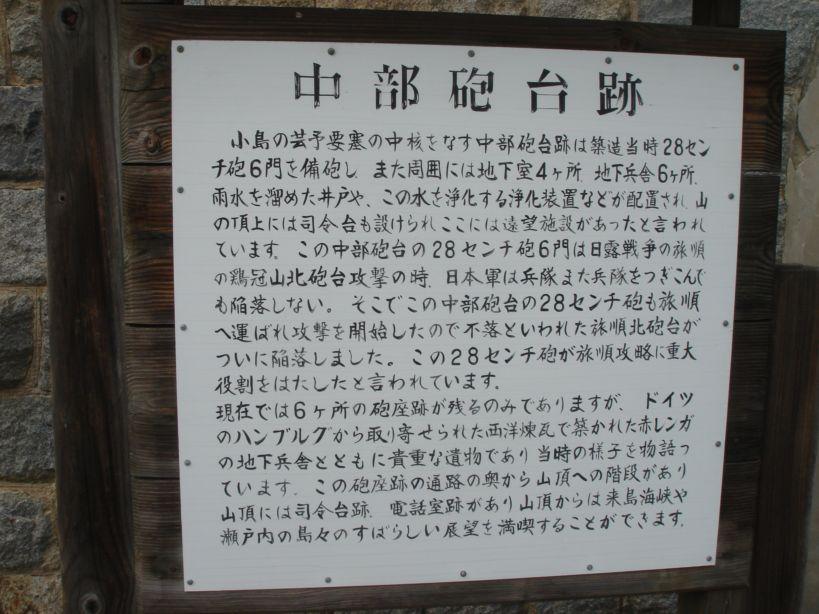 中部砲台跡
小島の芸予要塞の中核をなす中部砲台跡は築造当時28セン
チ砲6門を備砲し また周囲には地下室4ヶ所 地下兵舎6ヶ所、
雨水を溜めた井戸や、この水を浄化する浄化装置などが配置され 山
の頂上には司令台も設けられここには遠望施設があったと言われ
ています。この中部砲台の28センチ砲6門は日露戦争の旅順
の鶏冠山北砲台攻撃の時、日本軍は兵隊また兵隊をつぎこんで
も陥落しない。そこでこの中部砲台の28センチ砲も旅順
へ運ばれ攻撃を開始したので不落といわれた旅順北砲台が
ついに陥落しました。この28センチ砲が旅順攻略に重大
役割をはたしたと言われています.
現在では6ヶ所の砲座跡が残るのみでありますが、ドイツ
のハンブルグから取り寄せられた西洋煉瓦で築かれた赤レンガ
の地下兵舎とともに貴重な遺物であり当時の様子を物語っ
ています. この砲座跡の通路の奥から山頂への階段があり
山頂には司令台跡. 電話室跡があり山頂からは来島海峡や
瀬戸内の島々のすばらしい展望を満喫することができます.